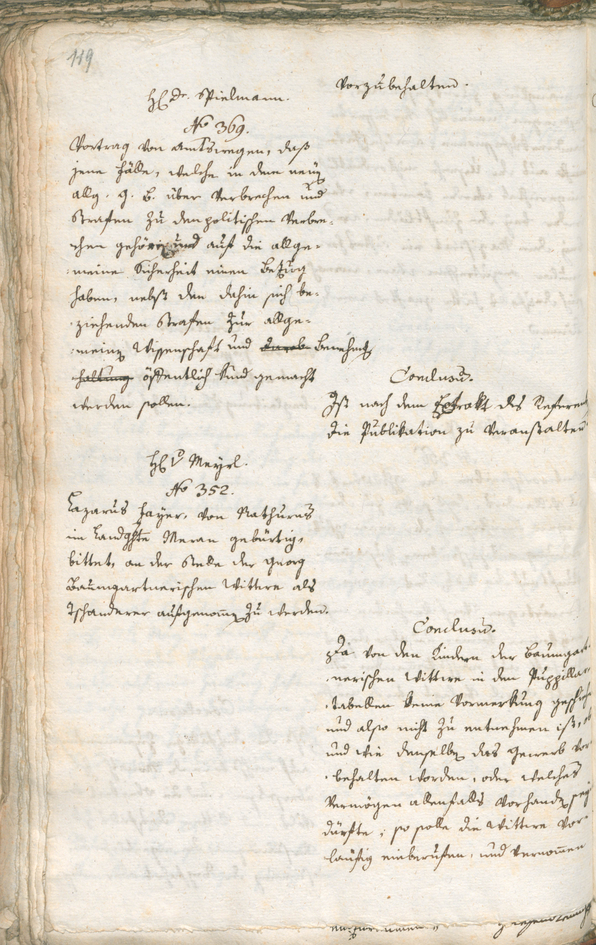 119
vorzubehalten.
H. Dr. Spielmann.
No 369.
Vortrag von Amtswegen, daß
jene Fälle, welche in dem neuen
allg. G. B. über Verbrechen und
Strafen zu den politischen Verbre-
chen gehören und auf die allge-
meine Sicherheit einen Bezug
haben, nebst den dahin sich be-
ziehenden Strafen zur allge-
meinen Wissenschaft und
haltung öffentlich kund gemacht
werden sollen.
Conclusum.
Ist nach dem Extrakt des Referenten
die Publikation zu veranstalten
H. v. Meyrl.
No 352.
Lazarus Jayer, von Nathurns
im Landghte Meran gebürtig,
bittet, an der Stelle der Georg
Baumgartnerischen Wittwe als
Tschanderer aufgenommen zu werden.
Conclusum.
Da von den Kindern der Baumgart-
nerischen Wittwe in den Puppillar-
tabellen keine Vormerkung geschehen
und also nicht zu entnehmen ist, ob
und wie denselben das Gewerb vor-
behalten worden, oder welches
Vermögen allenfalls vorhanden sein
dürfte; so solle die Wittwe vor-
läufig einberufen, und vernommen